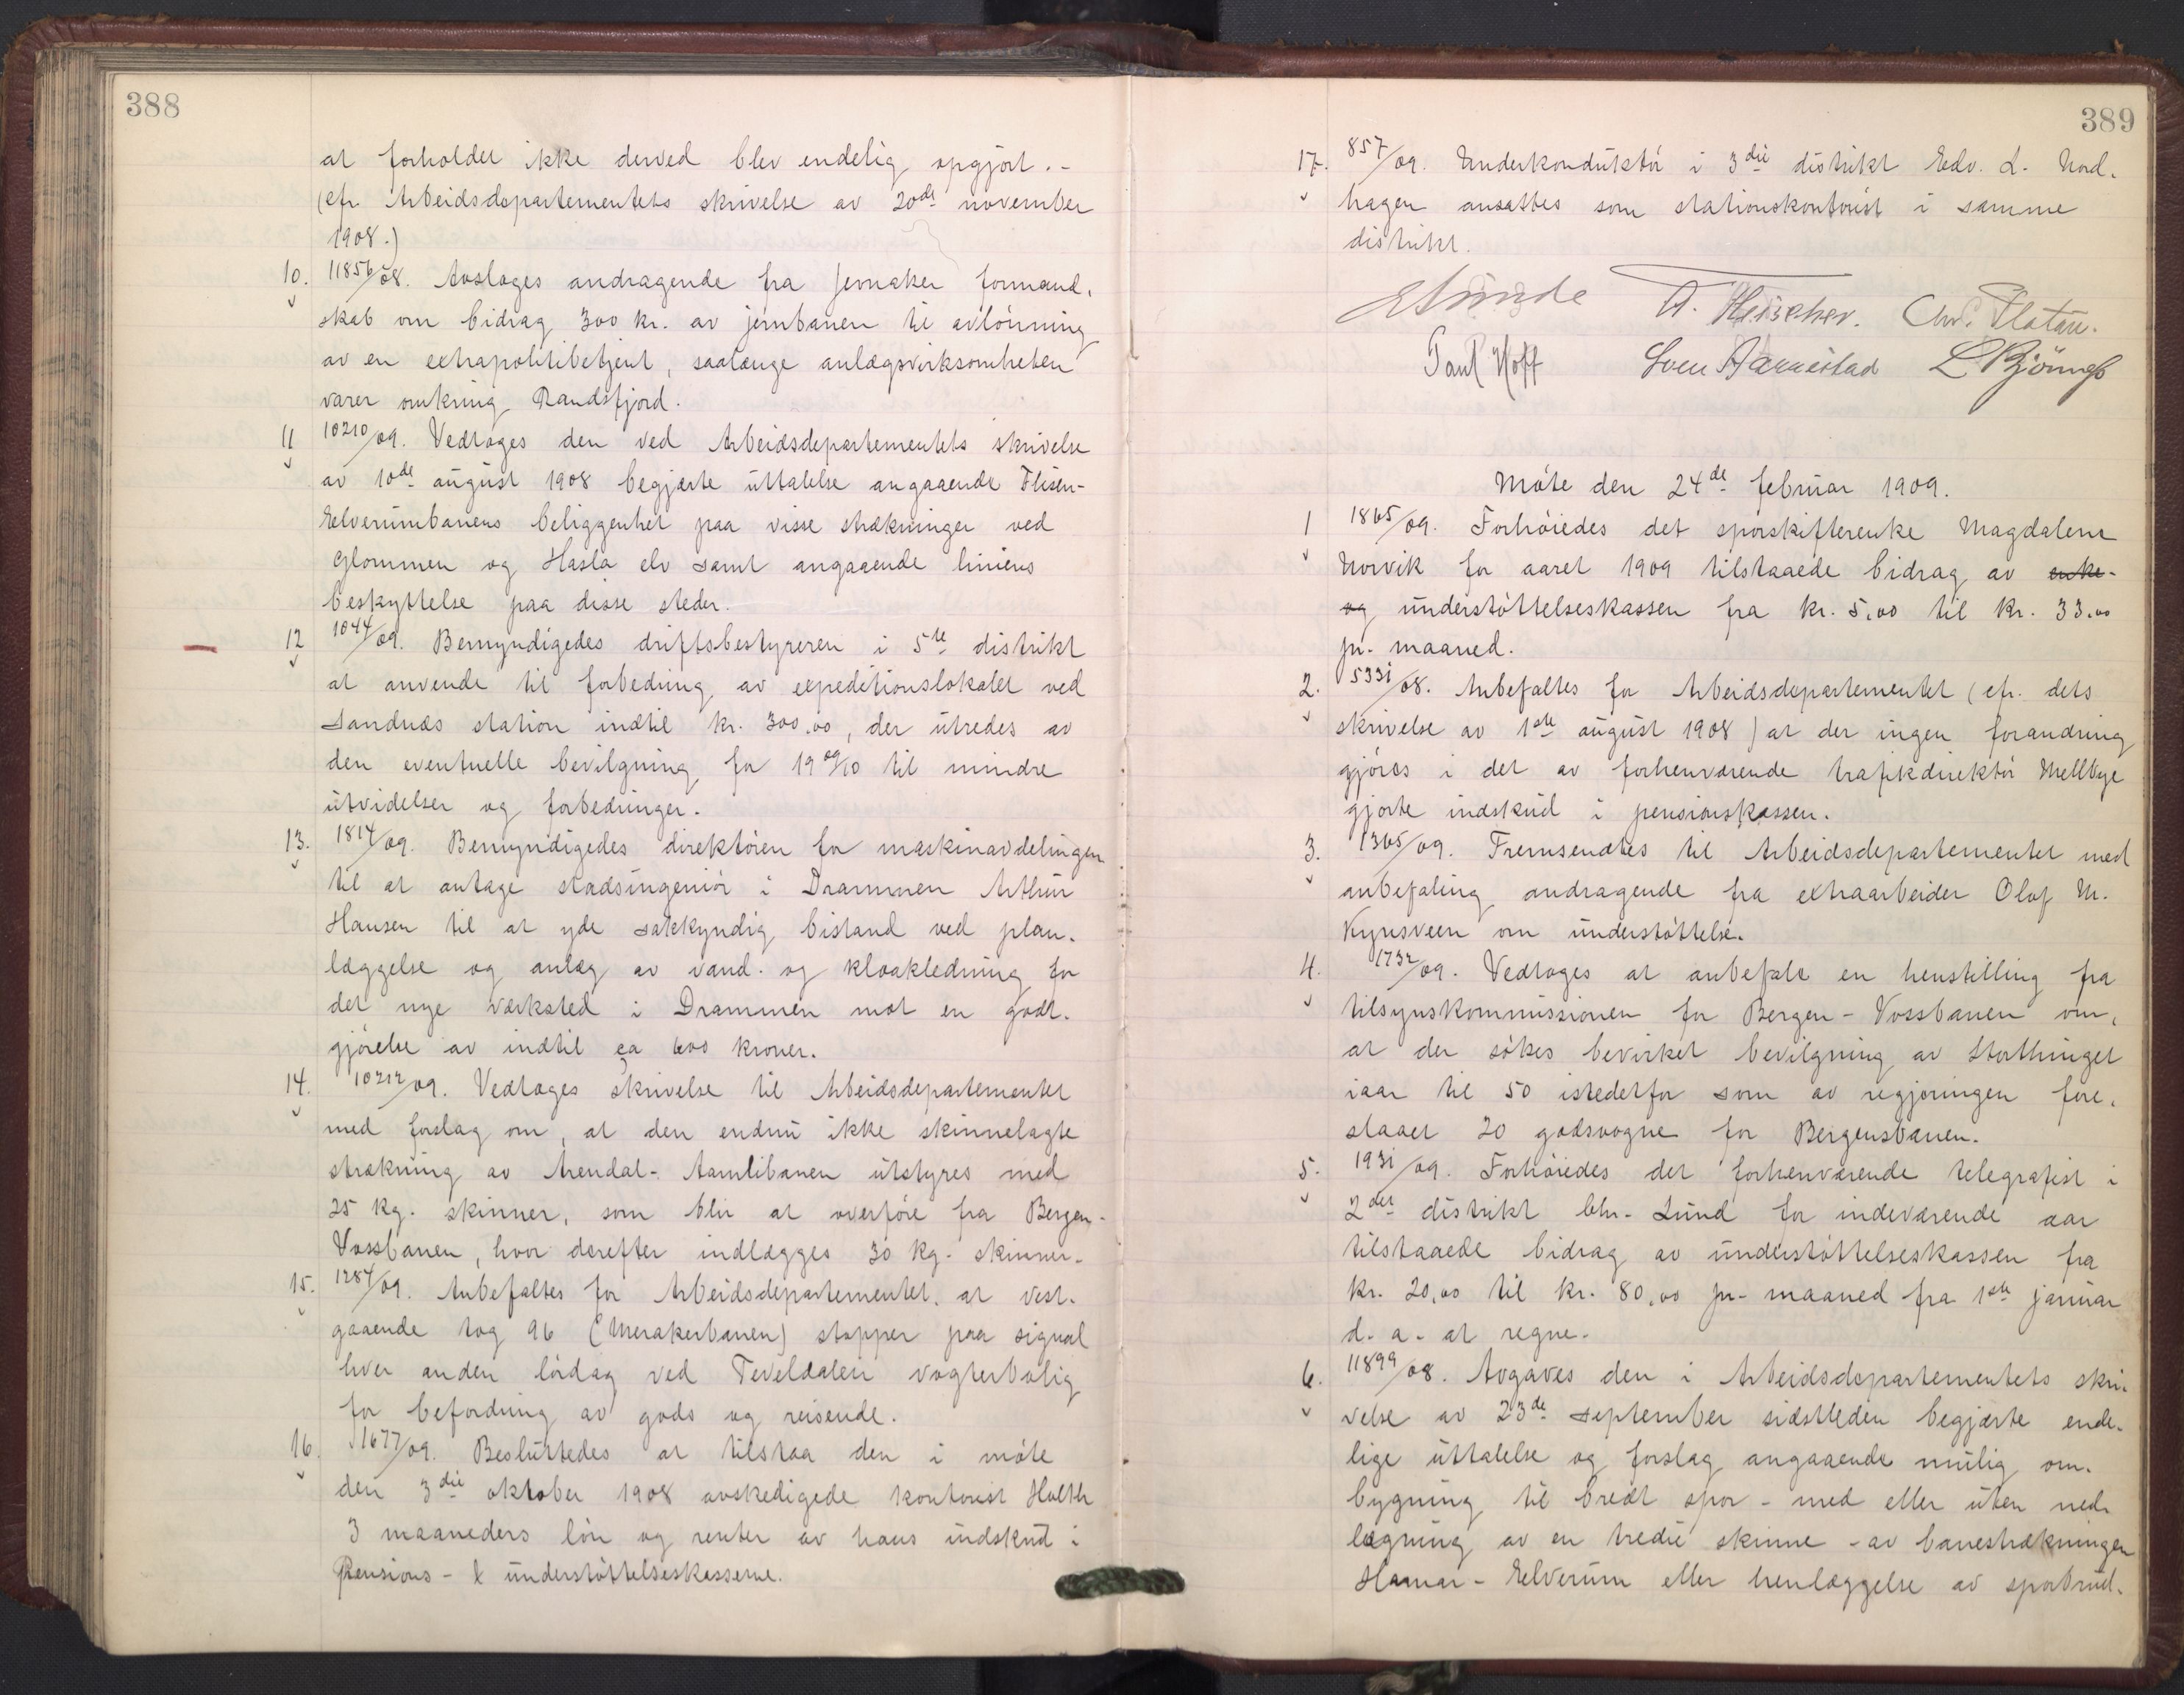 388
at forholdet ikke derved blev endelig opgjört.-
(cfr. Arbeidsdepartementets skrivelse av 20de november
1908.)
10. 11856/08. Avsloges andragende fra Jevnaker formand-
skab om bidrag 300 kr. av jernbanen til avlönning
av en extrapolitibetjent, saalænge anlægsvirksomheten
varer omkring Randsfjord.
11 10210/09. Vedtoges den ved Arbeidsdepartementets skrivelse
av 10de august 1908 begjærte uttalelse angaaende Flisen-
Elverumbanens beliggenhet paa visse strækninger ved
Glommen og Hasla elv samt angaaende liniens
beskyttelse paa disse steder.
12 1044/09. Bemyndigedes driftsbestyreren i 5te distrikt
at anvende til forbedring av expeditionslokalet ved
Sandnæs station indtil kr. 300.00, der utredes av
den eventuelle bevilgning for 1909/10 til mindre
utvidelser og forbedringer.
13. 1814/09. Bemyndigedes direktören for maskinavdelingen
til at antage stadsingeniör i Drammen Arthur
Hansen til at yde sakkyndig bistand ved plan-
læggelse og anlæg av vand- og kloakledning for
det nye verksted i Drammen mot en godt-
gjörelse av indtil ca 600 kroner.
14. 10212/09. Vedtoges skrivelse til Arbeidsdepartementet
med forslag om, at den endnu ikke skinnelagte
strækning av Arendal-Aamlibanen utstyres med
25 kg. skinner, som blir at overföre fra Bergen-
Vossbanen, hvor derefter indlægges 30 kg. skinner-
15. 1284/09. Anbefaltes for Arbeidsdepartementet, at vest-
gaaende tog 96 (Merakerbanen) stopper paa signal
hver anden lördag ved Teveldalen vogterbolig
for befordring av gods og reisende.
16. 1677/09. Besluttedes at tilstaa den i möte
den 3die oktober 1908 avskedigede kontorist Holth
3 maaneders lön og renter av hans indskud i
Pensions- & understöttelseskasserne.
389
17. 857/09. Underkonduktör i 3die distrikt Edv. L. Nord-
hagen ansattes som stationskontorist i samme
distrikt.
A. Fleischer. Chr. Platou.
Paul Hoff Sven Aarrestad
Möte den 24de februar 1909.
1 1865/09. Forhöiedes det sporskifterenke Magdalene
Norvik for aaret 1909 tilstaaede bidrag av enke-
og understöttelseskassen fra kr. 5.00 til kr. 33.00
pr. maaned.
2. 5331/08. Anbefaltes for Arbeidsdepartementet (cfr. dets
skrivelse av 1ste august 1908) at der ingen forandring
gjöres i det av forhenværende trafikdirektör Mellbye
gjorte indskud i pensionskassen.
3. 1365/09. Fremsendtes til Arbeidsdepartementet med
anbefaling andragende fra extraarbeider Olof M.
Kynsveen om understöttelse.
4. 1732/09. Vedtoges at anbefale en henstilling fra
tilsynskommissionen for Bergen-Vossbanen om,
at der sökes bevirket bevilgning av Storthinget
iaar til 50 istedetfor som av regjeringen fore-
slaaet 20 godsvogne for Bergensbanen.
5. 1931/09. Forhöiedes det forhenværende telegrafist i
2det distrikt Chr. Lund for indeværende aar
tilstaaede bidrag av understöttelseskassen fra
kr. 20,00 til kr. 80,00 pr. maaned fra 1ste januar
d. a. at regne.
6. 11899/08. Avgaves den i Arbeidsdepartementets skri-
velse av 23de september sidstleden begjærte ende-
lige uttalelse og forslag angaaende mulig om-
bygning til bredt spor - med eller uten ned-
lægning av en tredie skinne - av banestrækningen
Hamar-Elverum eller henlæggelse av sporbrud-